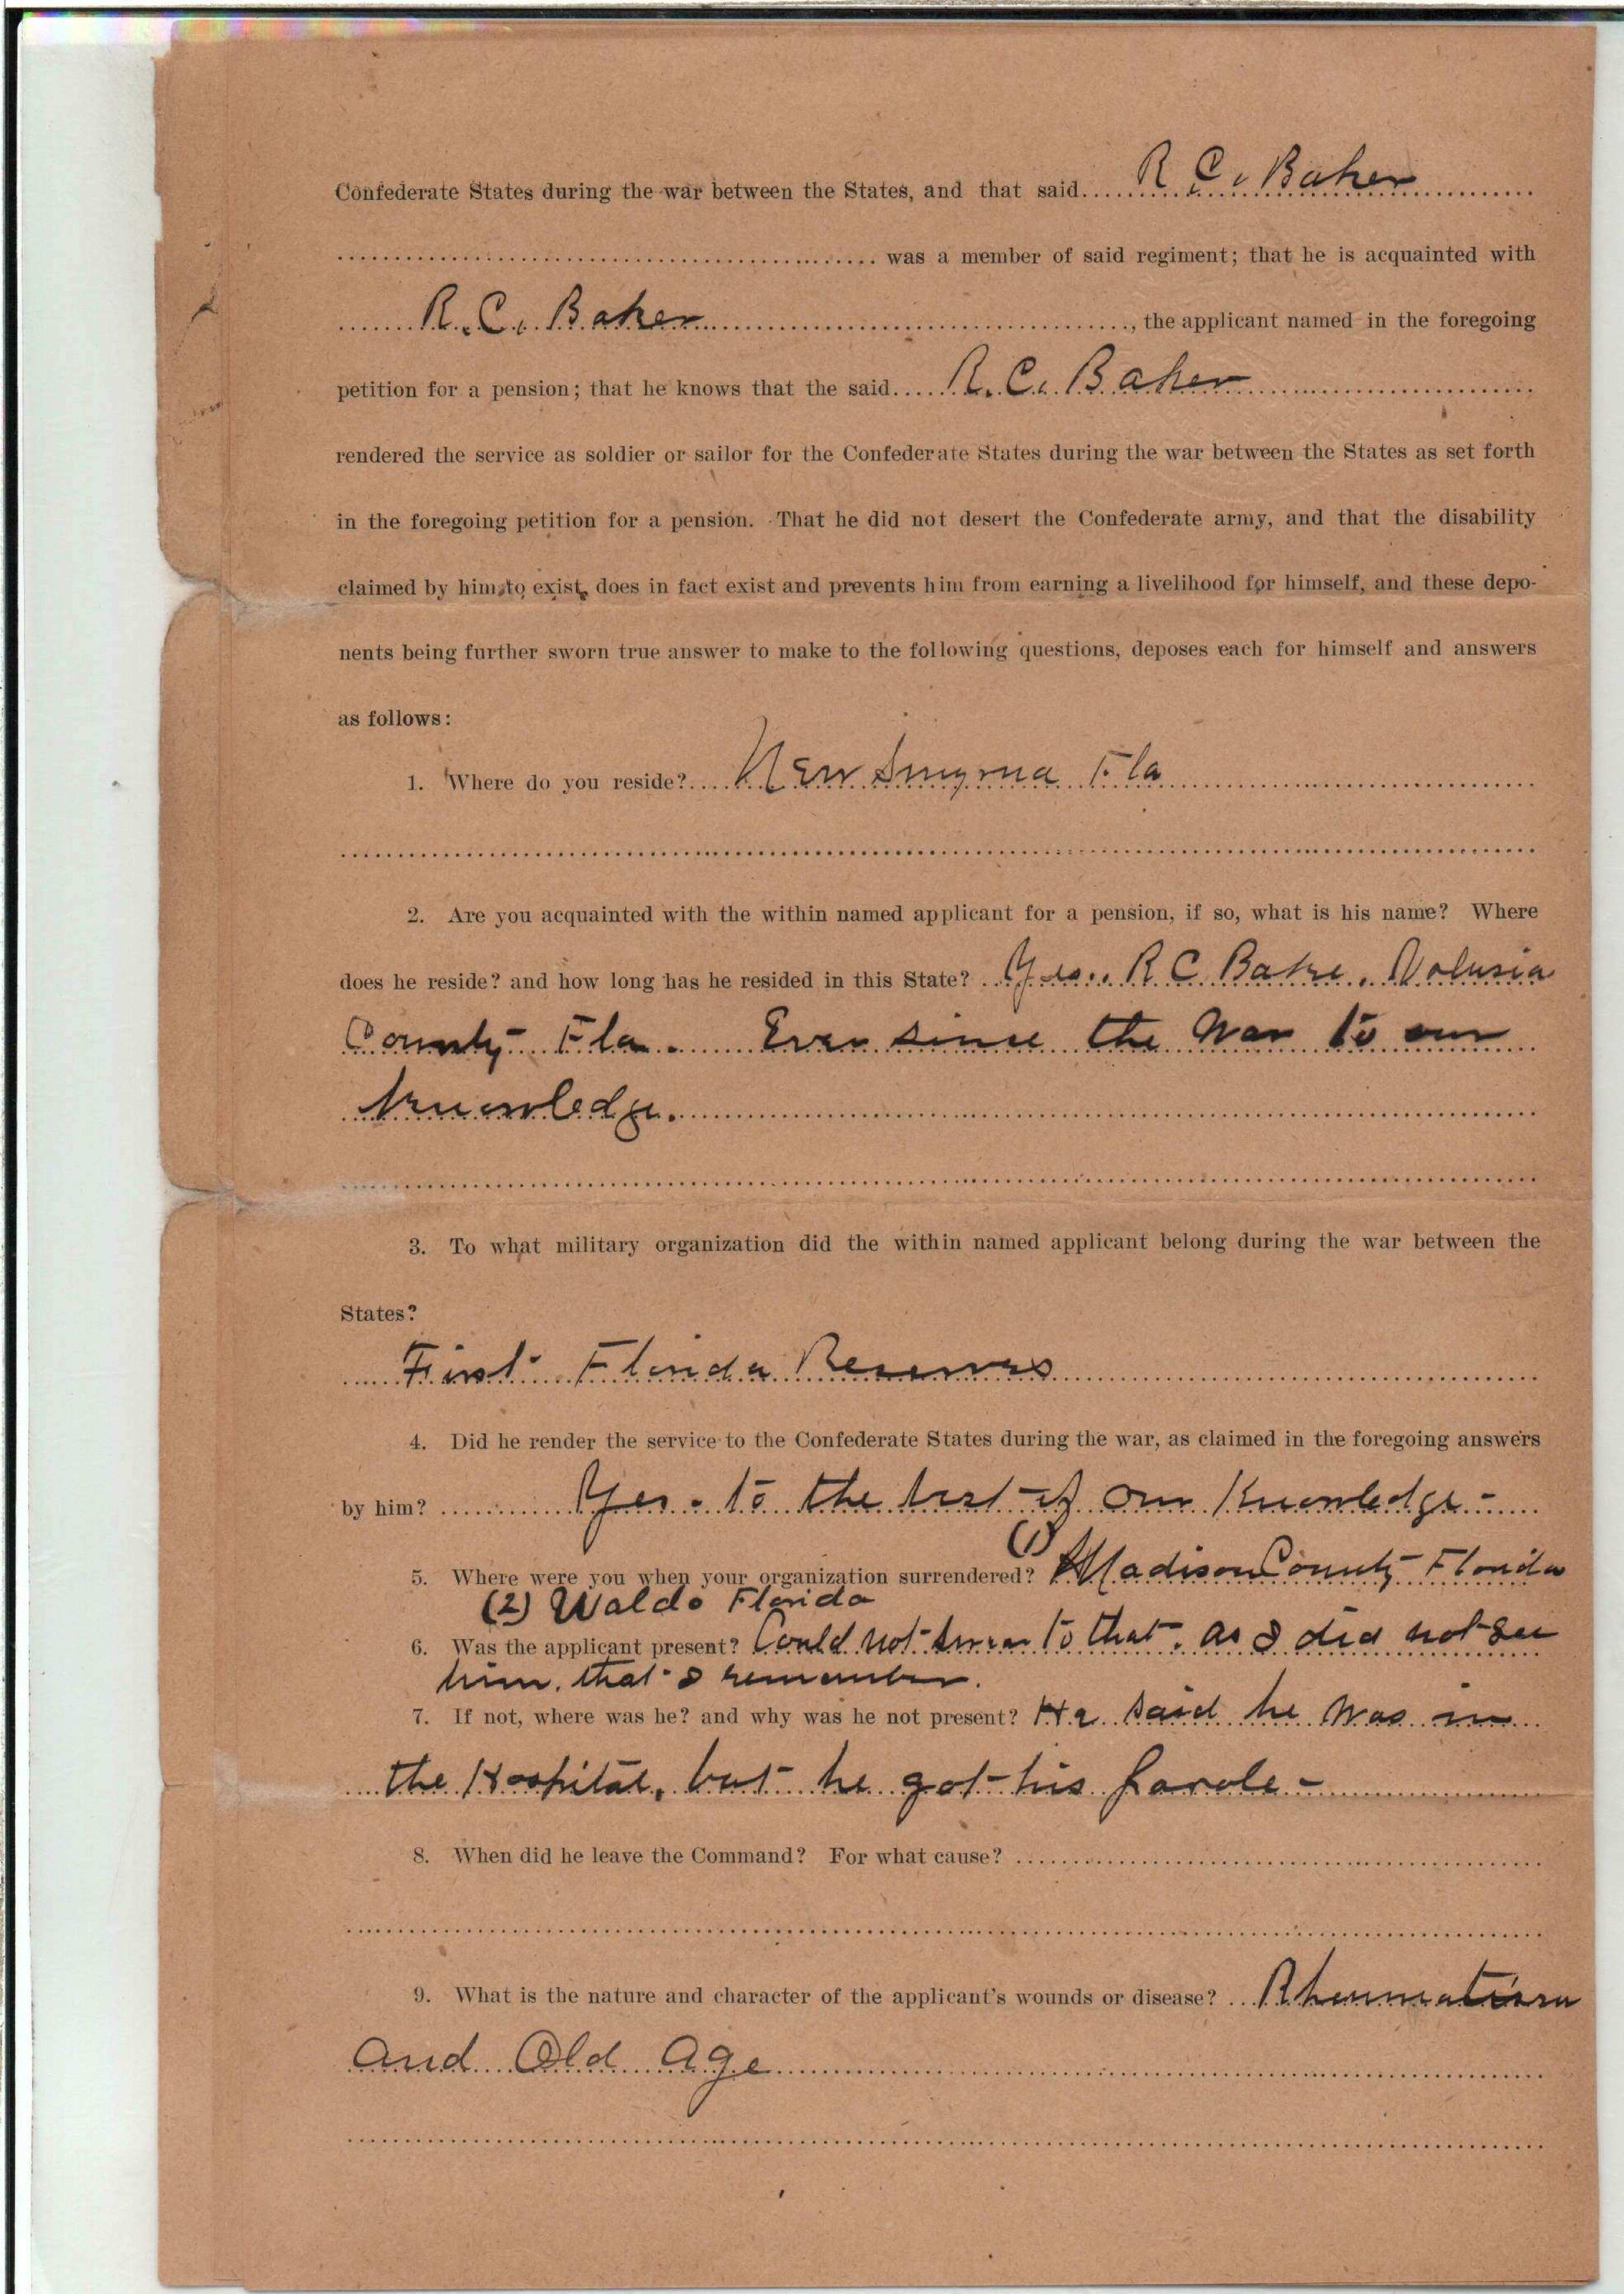 Confederate States during the war between the States, and that said R. C. Baker
was a member of said regiment; that he is acquainted with
R. C. Baker, the applicant named in the foregoing
petition for a pension; that he knows that the said R. C. Baker
rendered the service as soldier or sailor for the Confederate States during the war between the States as set forth
in the foregoing petition for a pension. That he did not desert the Confederate army, and that the disability
claimed by him to exist, does in fact exist and prevents him from earning a livelihood for himself, and these depo-
nents being further sworn true answer to make to the following questions, deposes each for himself and answers
as follows:
1. Where do you reside? New Smyrna Fla
2. Are you acquainted with the within named applicant for a pension, if so, what is his name? Where
does he reside? and how long has he resided in this State? Yes. R C Baker, Volusia
County Fla. Ever since the War to our
knowledge.
3. To what military organization did the within named applicant belong during the war between the
States?
First Florida Reserves
4. Did he render the service to the Confederate States during the war, as claimed in the foregoing answers
by him? Yes - to the best of our Knowledge -
5. Where were you when your organization surrendered? (1) Madison County Florida
(2) Waldo Florida
6. Was the applicant present? Could not swear to that, as I did not see
him, that I remember.
7. If not, where was he? and why was he not present? He said he was in
the Hospital, but he got his parole -
8. When did he leave the Command? For what cause?
9. What is the nature and character of the applicant's wounds or disease? Rheumatism
and Old Age